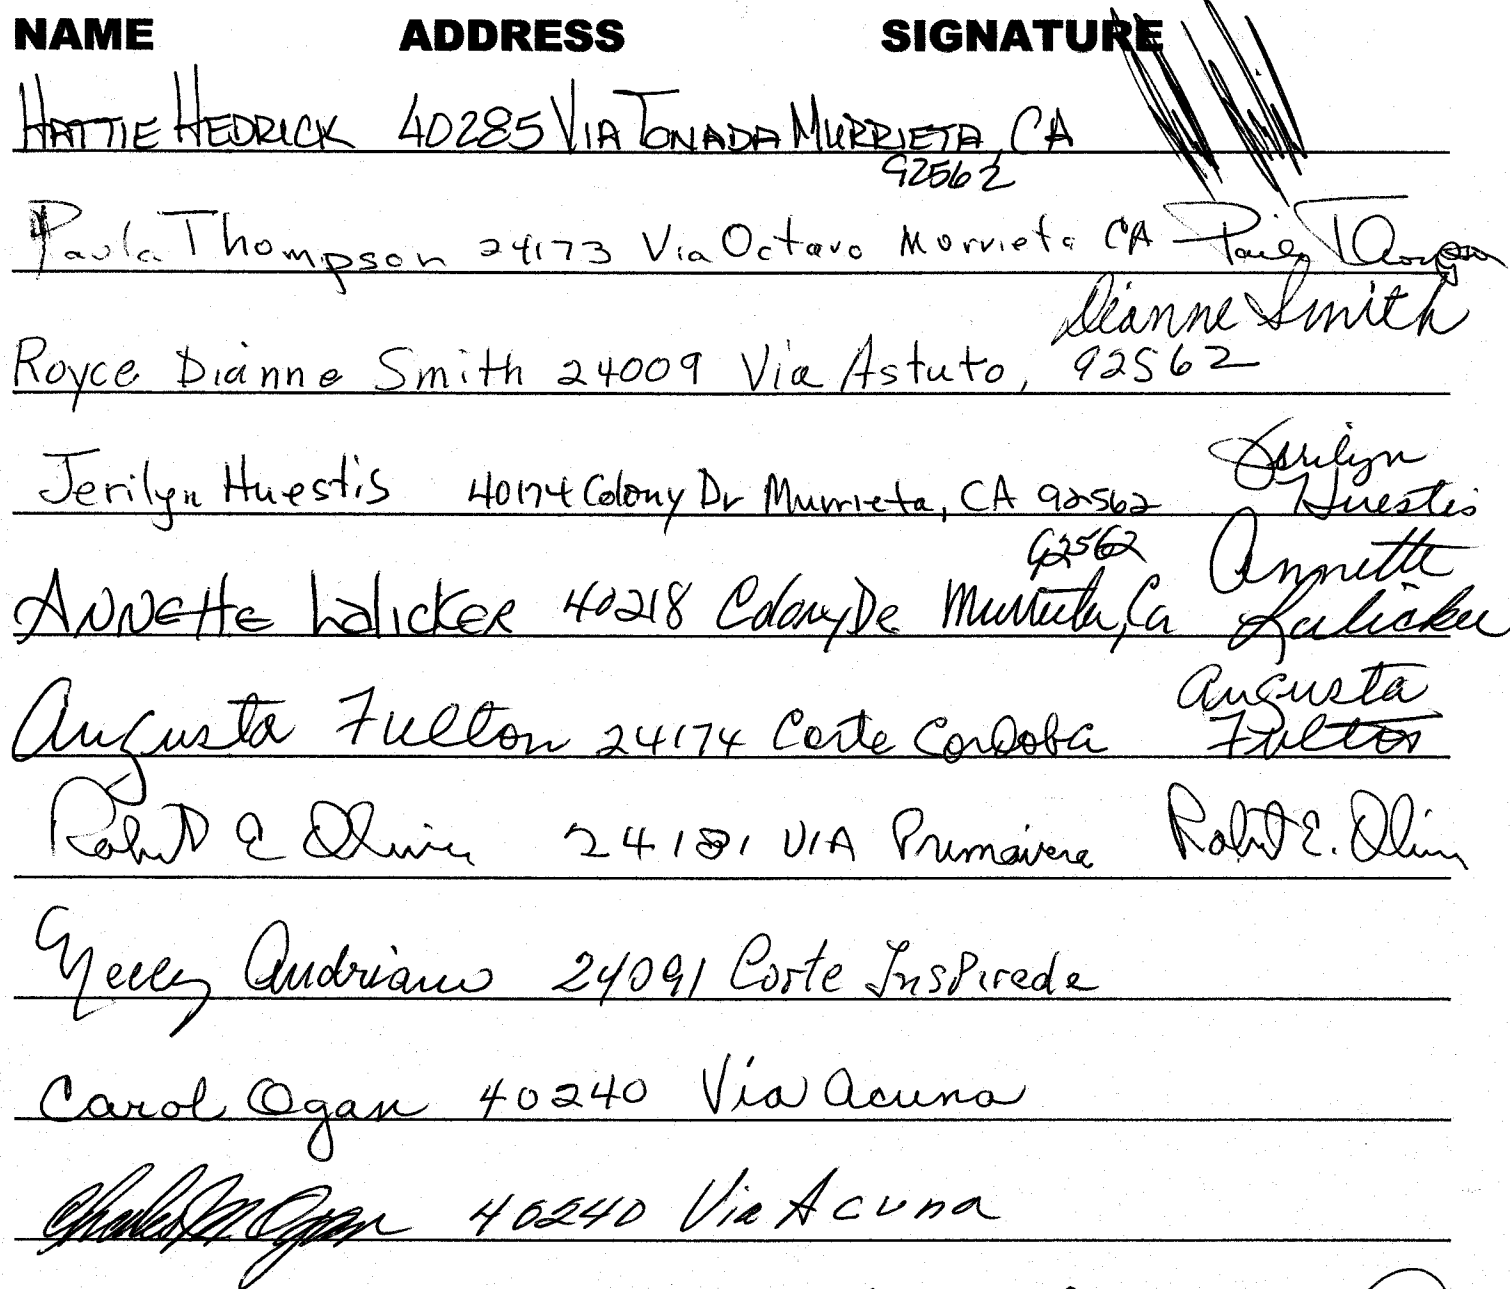 NAME ADDRESS SIGNATURE
HATTIE HEDRICK 40285 VIA TONADA MURRIETA, CA
92562
Paula Thompson 24173 Via Octavo Murrieta CA Paula Thompson
Dianne Smith
Royce Dianne Smith 24009 Via Astuto, 92562
Jerilyn
Jerilyn Huestis 40174 Colony Dr Murrieta, CA 92562 Huestis
92562 Annette
ANNETTE LALICKER 40218 Colony Dr Murrieta, Ca Lalicker
Augusta
Augusta Fulton 24174 Corte Cordoba Fulton
Robert E Oliver 24181 VIA Primavera Robert E. Oliver
Andriano 24091 Corte Inspirada
Carol Ogan 40240 Via Acuna
Charles M. Ogan 40240 Via Acuna